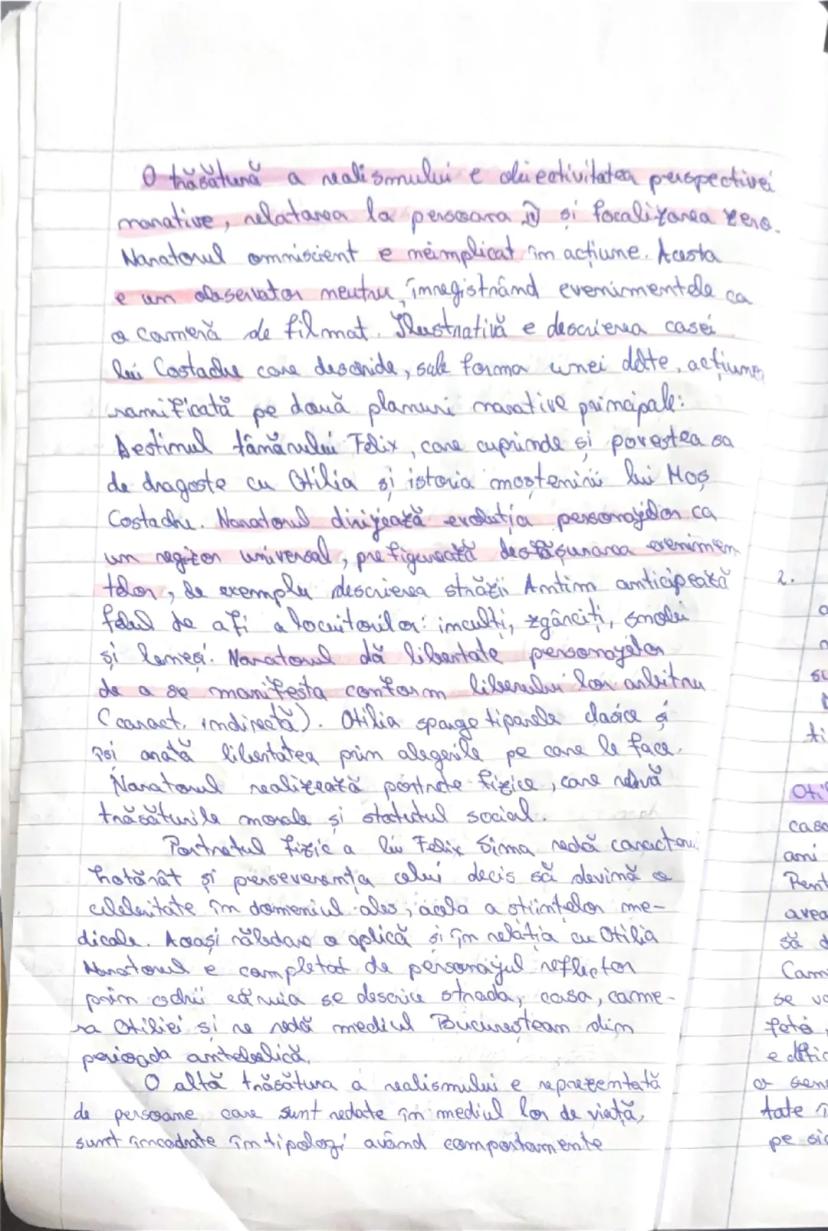 O trăsătură a realismului e obiectivitatea perspectivei
narative, relatarea la persoana III și focalizarea zero.
Naratorul omniscient e neimplicat în acțiune. Acesta
e un observator neutru, înregistrând evenimentele ca
o cameră de filmat. Ilustrativă e descrierea casei
lui Costache care deschide, sub forma unei acțiunea
ramificată pe două planuri narative principale:
Destinul tânărului Felix, care cuprinde și povestea sa
de dragoste cu Otilia și istoria moștenirii lui Moș
Costache. Naratorul dirijează evoluția personajelor ca
un regizor universal, prefigurează desfășunarea evenimen
telor, de exemplu descrierea străzii Antim anticipează
felul de a fi a locuitorilor: inculți, zgârciți, snobi
și leneși. Naratorul dă libertate personajelor
de a se manifesta conform liberului lor arbitru
(caract. indirectă). Otilia sparge tiparele clasice și
își arată libertatea prin alegerile pe care le face.
Naratorul realizează portrete fizice, care redă
trăsăturile morale și statutul social.
Portretul fizic a lui Felix Sima redă caracterul
hotărât și perseverența celui decis să devină o
celebritate în domeniul ales, acela a științelor me-
dicale. Aceași răbdare o aplică și în relația cu Otilia
Naratorul e completat de personajul reflector
prin ochii căruia se descrie strada, casa, came-
ra Otiliei și ne redă mediul Bucureștean din
perioada antebelică.
O altă trăsătura a realismului e reprezentată
de persoane care sunt redate în mediul lor de viață,
sunt încadrate în tipologi având comportamente
2.
Otil
casa
ami
Pent
avea
să d
Cam
se va
fată
e dific
o sen
tate î
pe sic